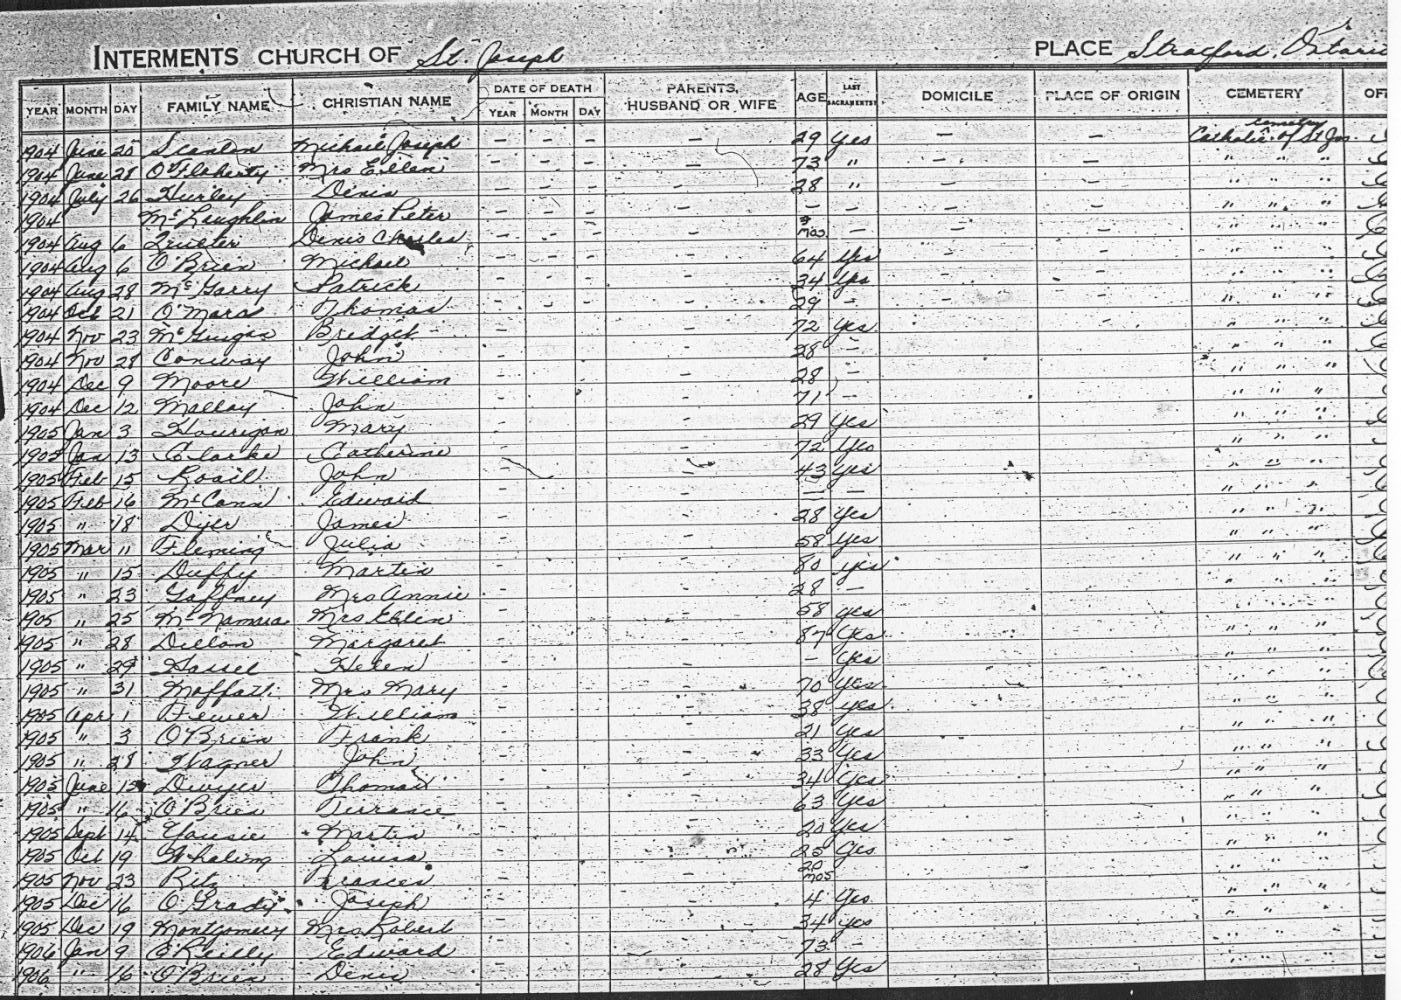 INTERMENTS CHURCH OF St. Joseph PLACE Stratford, Ontario
YEAR MONTH DAY FAMILY NAME CHRISTIAN NAME DATE OF DEATH YEAR MONTH DAY PARENTS, HUSBAND OR WIFE AGE LAST SACRAMENTS DOMICILE PLACE OF ORIGIN CEMETERY
1904 June 25 Scanlon Michael Joseph - - - - 29 Yes - - Catholic cemetery of St Jos
1904 June 28 O'Flaherty Mrs Ellen - - - - 73 " - - " " "
1904 July 26 Hurley Denis - - - - 28 " - - " " "
1904 McLaughlin James Peter - - - - - - - - " " "
1904 Aug 6 Trueter Denis Charles - - - - mos - - - " " "
1904 Aug 6 O'Brien Michael - - - - 64 Yes " " "
1904 Aug 28 McGarry Patrick - - - - 34 Yes " " "
1904 Oct 21 O'Mara Thomas - - - - 29 - " " "
1904 Nov 23 McGuigan Bridget - - 72 Yes " " "
1904 Nov 28 Conway John - - 28 - " " "
1904 Dec 9 Moore William - - 28 - " " "
1904 Dec 12 Malloy John - - 71 - " " "
1905 Jan 3 Hourigan Mary - - 29 Yes " " "
1905 Jan 13 Clarke Catherine - - 72 Yes " " "
1905 Feb 15 John - - 43 Yes " " "
1905 Feb 16 McCann Edward - - - - " " "
1905 " 18 Dyer James - - 28 Yes " " "
1905 Mar 11 Fleming Julia - - 58 Yes " " "
1905 " 15 Duffy Martin - - 80 yes " " "
1905 " 23 Gaffney Mrs Annie - - 28 - " " "
1905 " 25 McNamara Mrs Ellen - - 58 yes " " "
1905 " 28 Dillon Margaret - - 87 Yes " " "
1905 " 29 Hassel Helen - - - Yes " " "
1905 " 31 Moffatt Mrs Mary - - 70 Yes " " "
1905 Apr 1 Fewer William - - 38 yes " " "
1905 " 3 O'Brien Frank - - 21 Yes " " "
1905 " 28 Wagner John - - 33 Yes " " "
1905 June 13 Dwyer Thomas - - 34 Yes " " "
1905 " 16 O'Brien Terrance - - 63 Yes " " "
1905 Sept 14 Martin - - 20 Yes " " "
1905 Oct 19 Whaling Louisa - - 25 Yes " " "
1905 Nov 23 Ritz Frances - - 20 mos " " "
1905 Dec 16 O'Grady Joseph - - 4 Yes " " "
1905 Dec 19 Montgomery Mrs Robert - - 34 yes " " "
1906 Jan 9 O'Reilly Edward - - 73 - " " "
1906 " 16 O'Brien Denis - - 28 Yes " " "